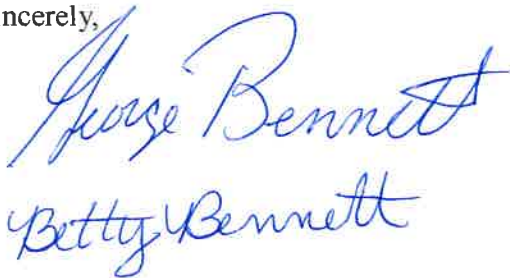 ncerely,
George Bennett
Betty Bennett